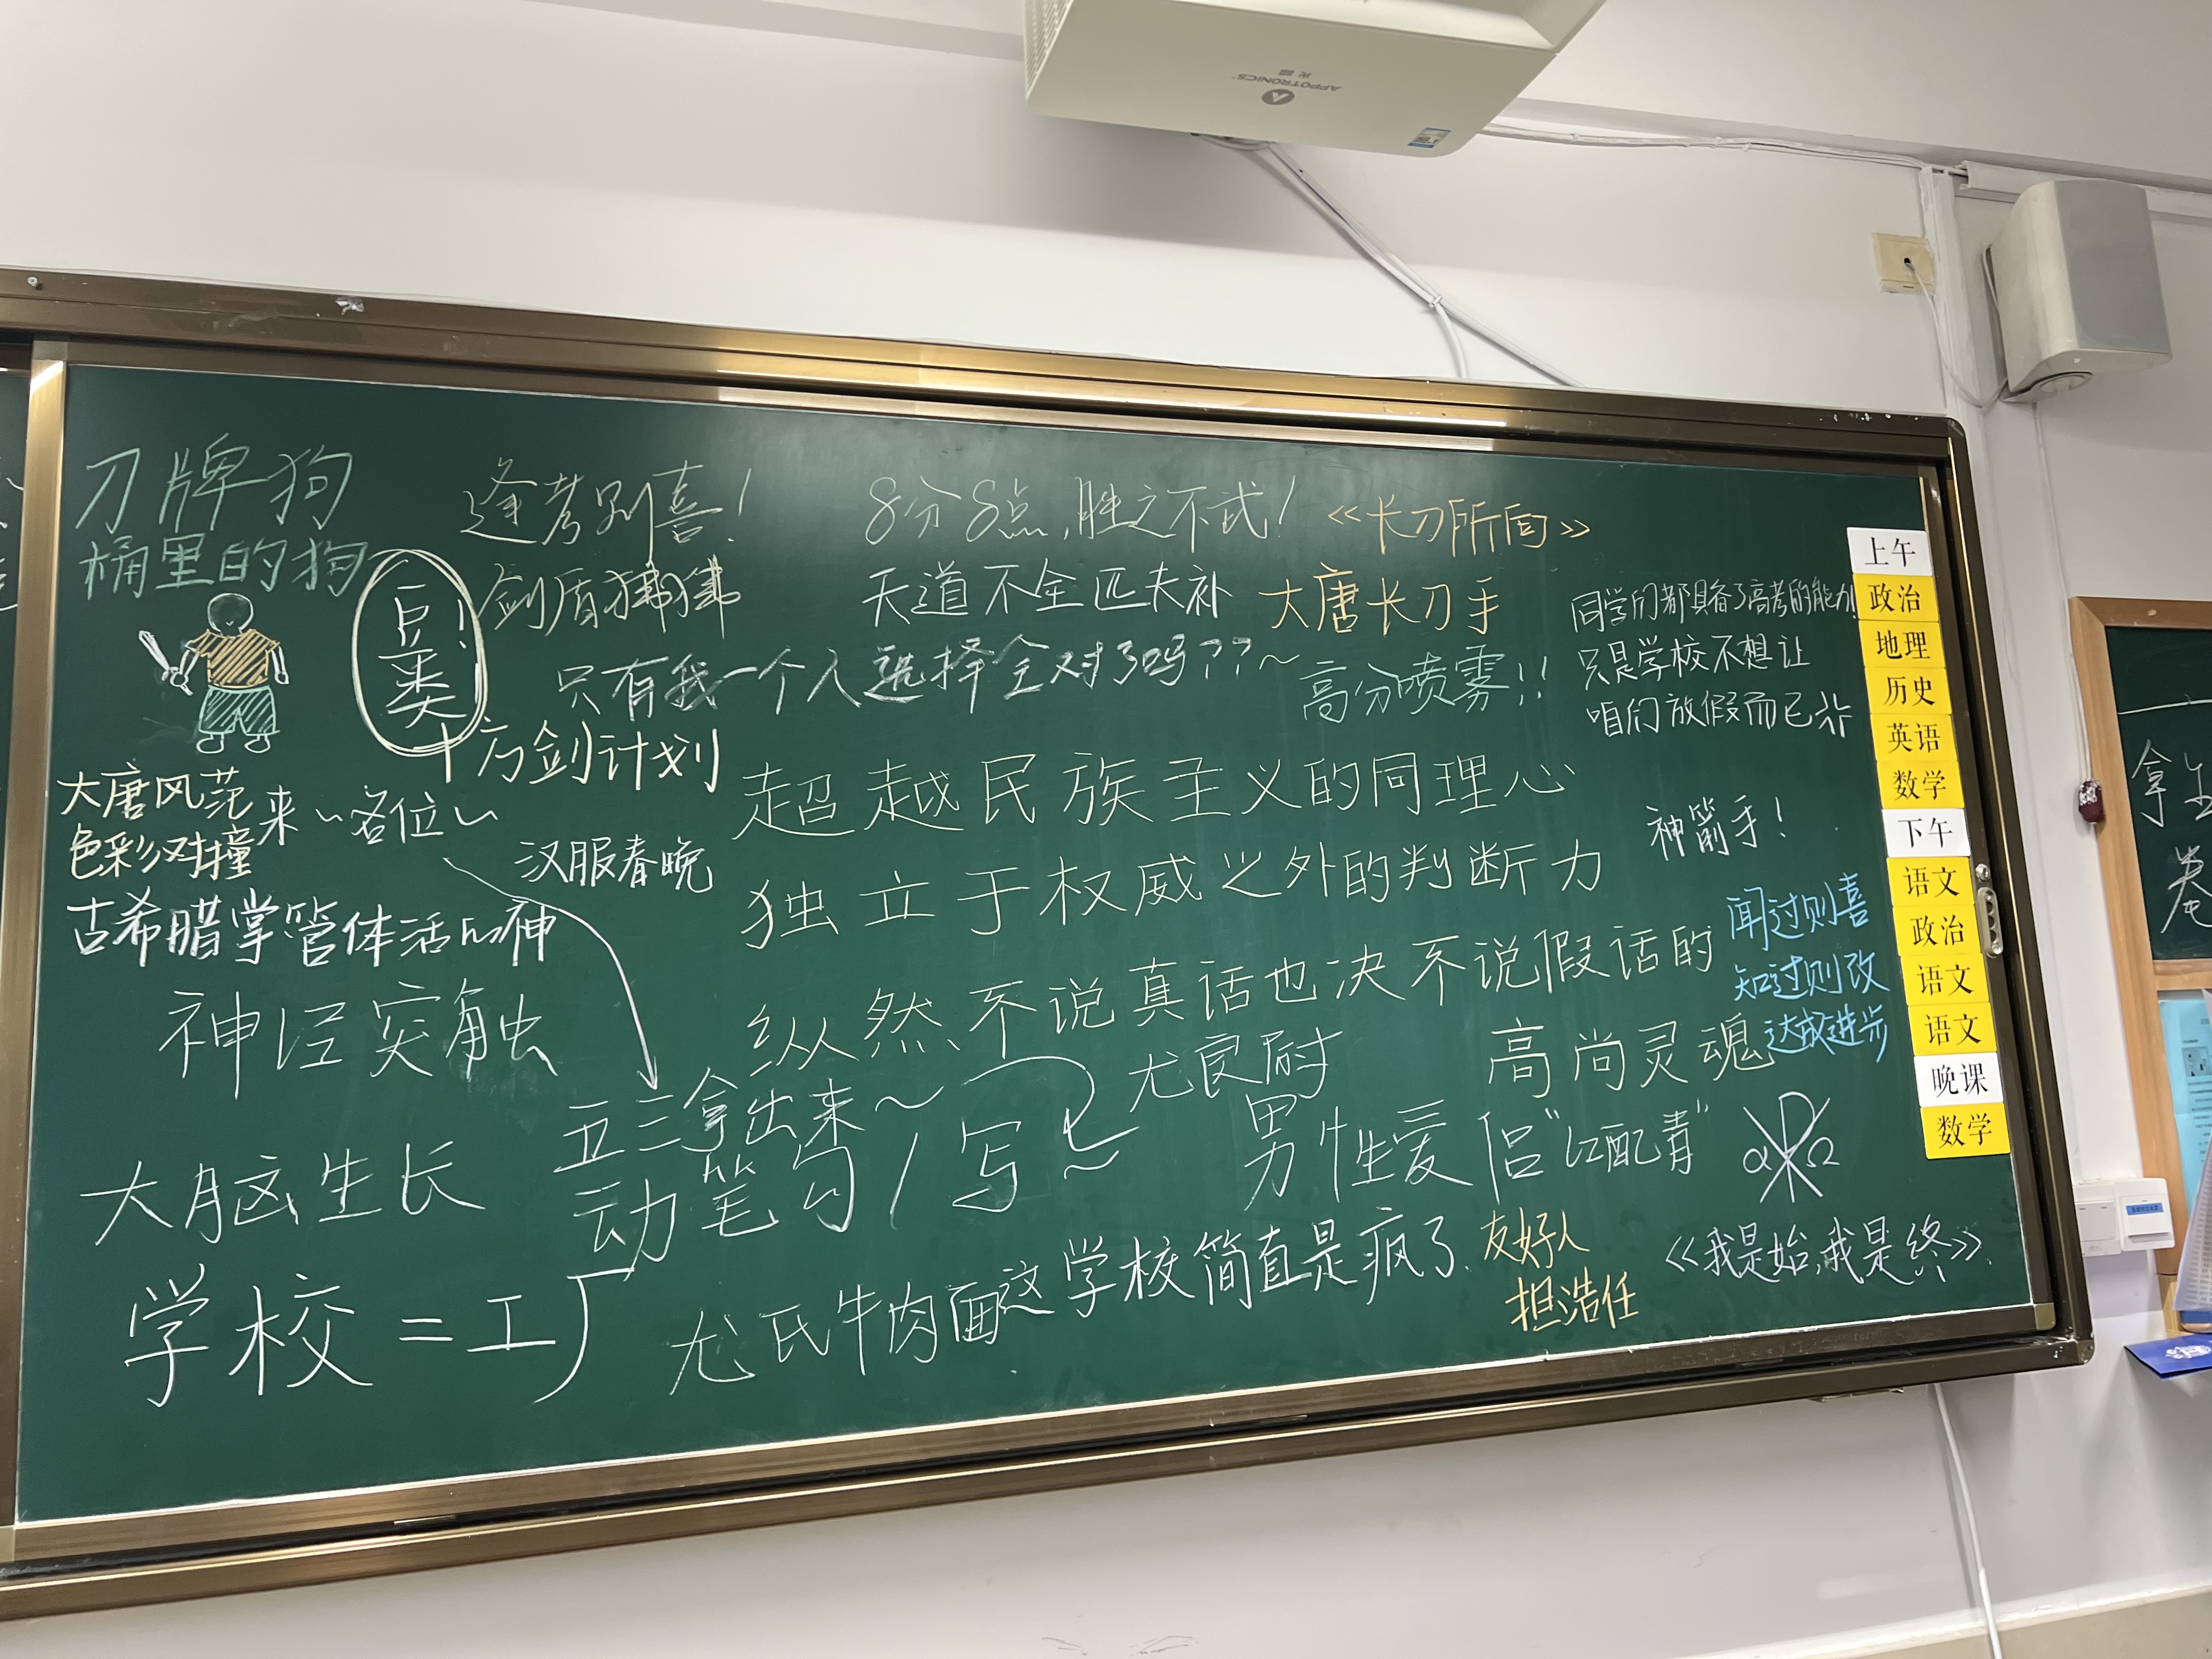 APPOTRONICS
刀牌狗
桶里的狗
逢考别喜!
8分8点,胜之不武!
《长刀所向》
巨类!
剑盾狒狒
天道不全匹夫补
大唐长刀手
同学们都具备了高考的能力!
只是学校不想让
咱们放假而已
只有我一个人选择全对了吗??~
高分喷雾!!
十方剑计划
大唐风范
色彩对撞
来~各位~
汉服春晚
超越民族主义的同理心
神箭手!
独立于权威之外的判断力
古希腊掌管体活的神
闻过则喜
知过则改
达成进步
纵然不说真话也决不说假话的
高尚灵魂
神经突触
尤良尉
五三拿出来~
动笔勾/写~
男性爱侣"红配青"
α Ω
大脑生长
学校=工厂
尤氏牛肉面
这学校简直是疯了.
友好人
担浩任
《我是始,我是终》.
上午
政治
地理
历史
英语
数学
下午
语文
政治
语文
语文
晚课
数学
拿
卷